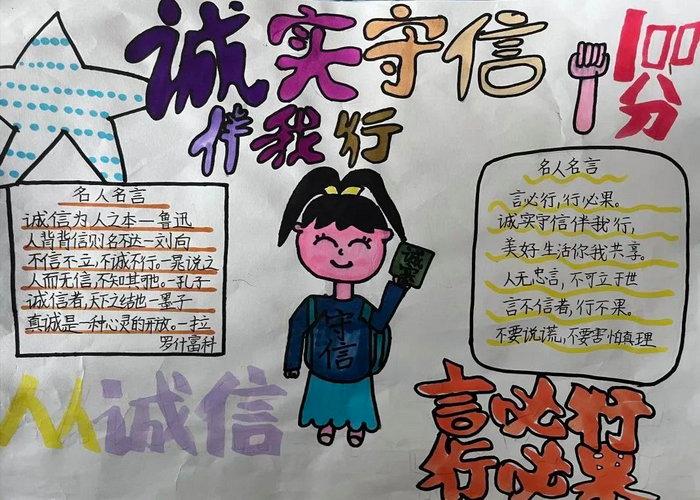 诚实守信
伴我行
100
分
名人名言
诚信为人之本一鲁迅
人背背信则名不达一刘向
不信不立,不诚不行。一晁说之
人而无信,不知其 一孔子
诚信者,天下之结也一墨子
真诚是一种心灵的开放。一拉
罗什富科
守
信
名人名言
言必行,行必果。
诚实守信伴我行,
美好生活你我共享。
人无忠言,不可立于世
言不信者,行不果。
不要说谎,不要害怕真理
人人诚信
言必行
行必果